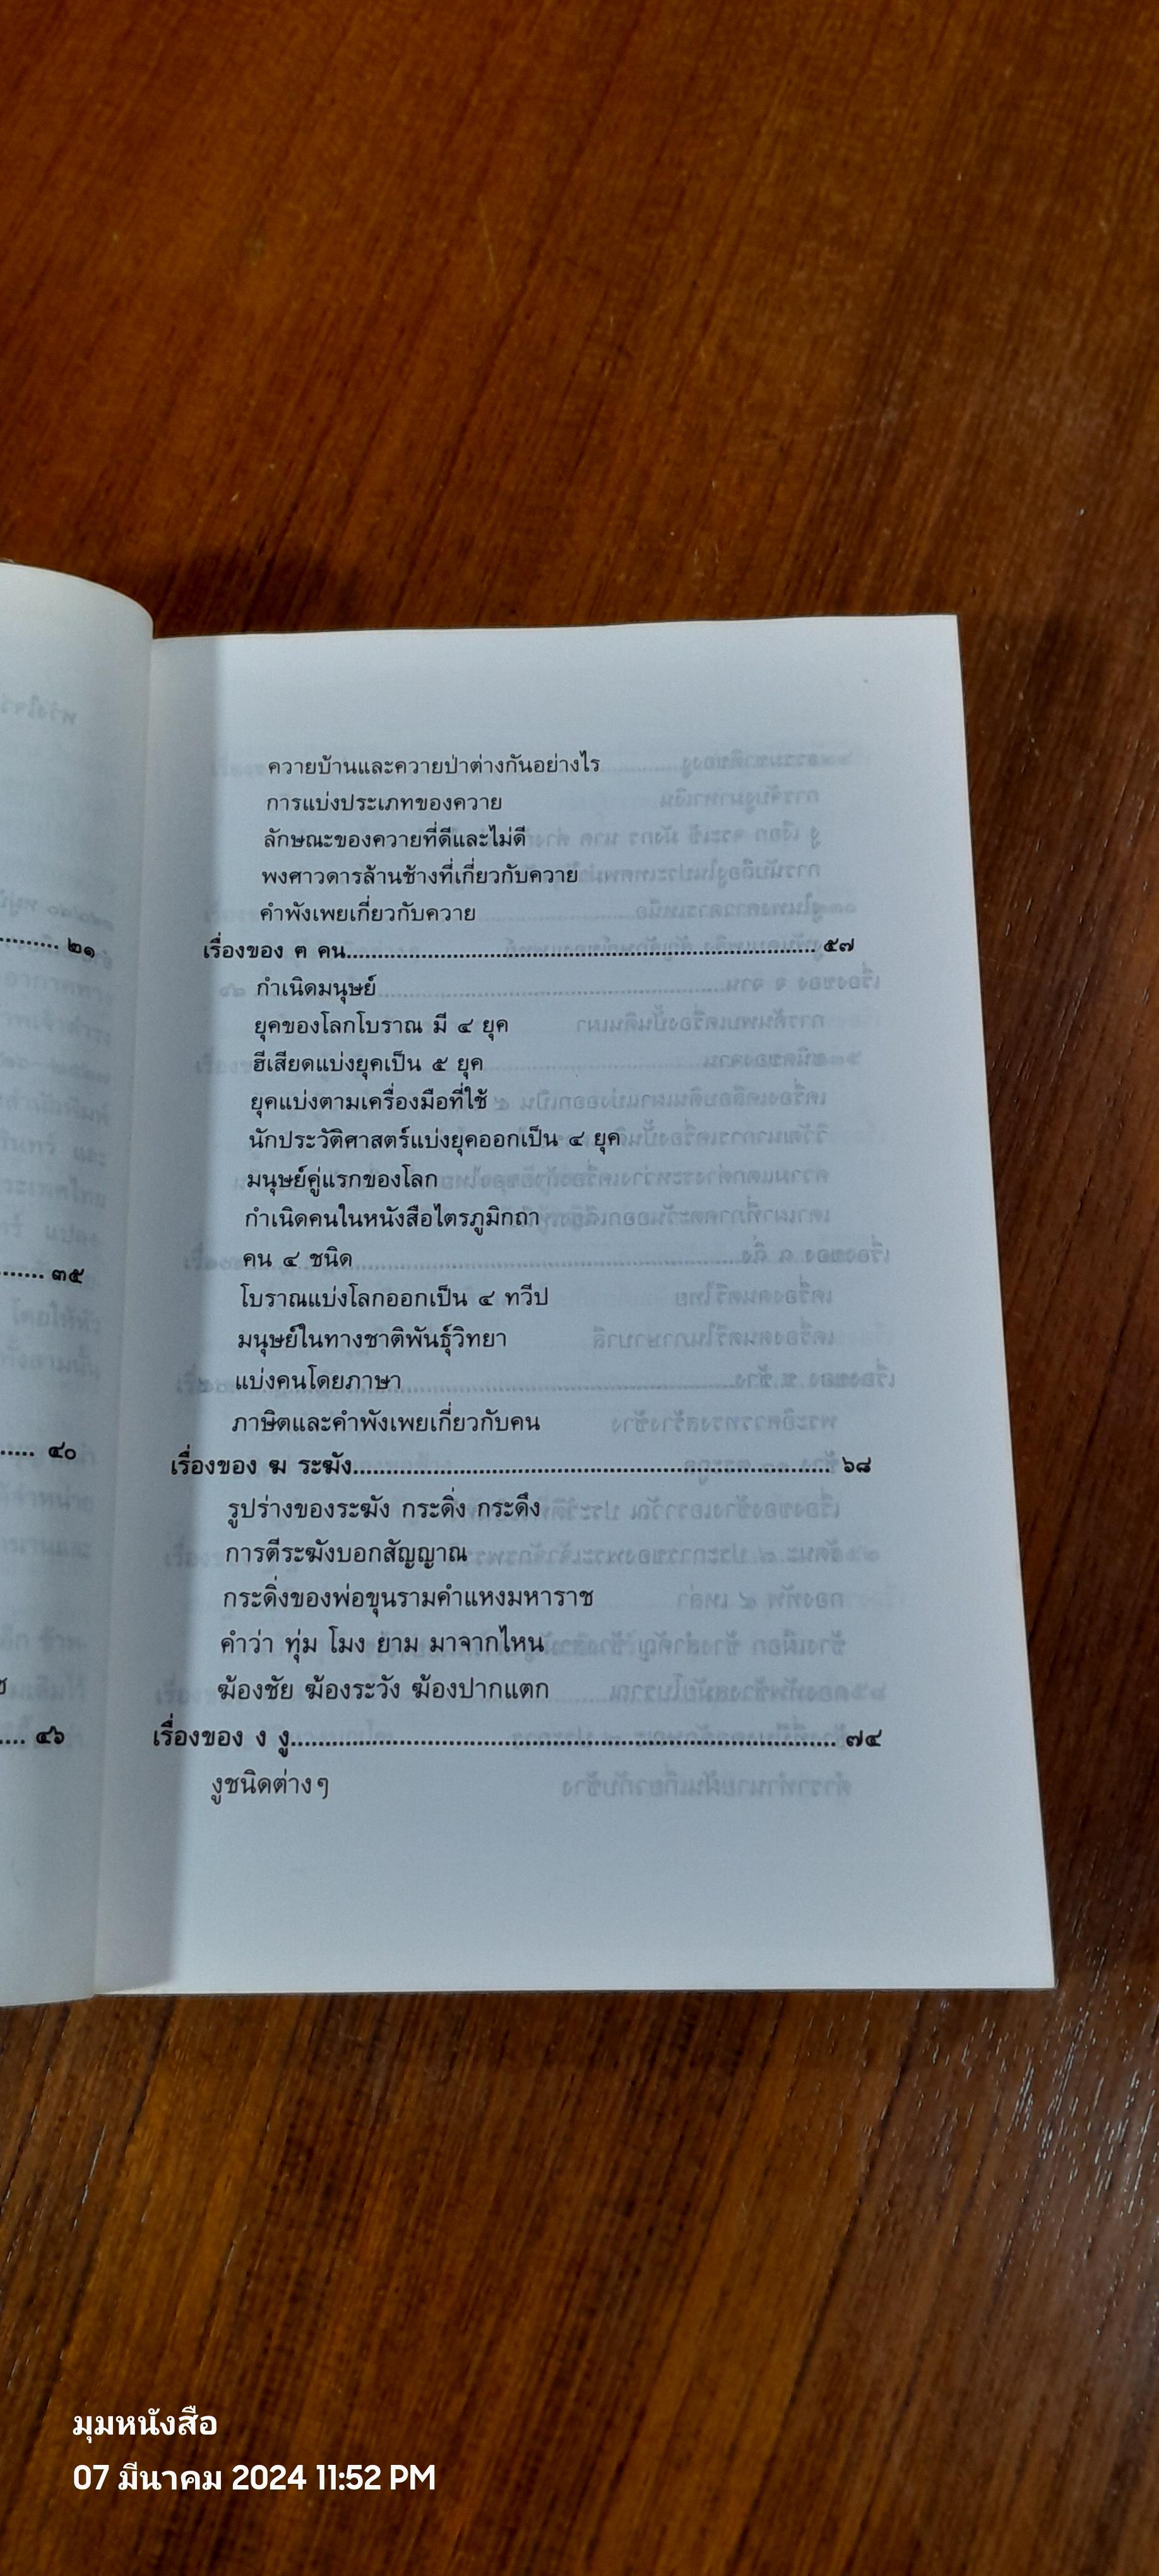 ๒๑
๓๕
๔๐
๔๖
ควายบ้านและควายป่าต่างกันอย่างไร
การแบ่งประเภทของควาย
ลักษณะของควายที่ดีและไม่ดี
พงศาวดารล้านช้างที่เกี่ยวกับควาย
คำพังเพยเกี่ยวกับควาย
เรื่องของ ฅ คน........................................ ๕๗
กำเนิดมนุษย์
ยุคของโลกโบราณ มี ๔ ยุค
ฮีเสียดแบ่งยุคเป็น ๕ ยุค
ยุคแบ่งตามเครื่องมือที่ใช้
นักประวัติศาสตร์แบ่งยุคออกเป็น ๔ ยุค
มนุษย์คู่แรกของโลก
กำเนิดคนในหนังสือไตรภูมิกถา
คน ๔ ชนิด
โบราณแบ่งโลกออกเป็น ๔ ทวีป
มนุษย์ในทางชาติพันธุ์วิทยา
แบ่งคนโดยภาษา
ภาษิตและคำพังเพยเกี่ยวกับคน
เรื่องของ ฆ ระฆัง........................................ ๖๘
รูปร่างของระฆัง กระดิ่ง กระดึง
การตีระฆังบอกสัญญาณ
กระดิ่งของพ่อขุนรามคำแหงมหาราช
คำว่า ทุ่ม โมง ยาม มาจากไหน
ฆ้องชัย ฆ้องระวัง ฆ้องปากแตก
เรื่องของ ง งู........................................ ๗๔
งูชนิดต่างๆ
มุมหนังสือ
07 มีนาคม 2024 11:52 PM